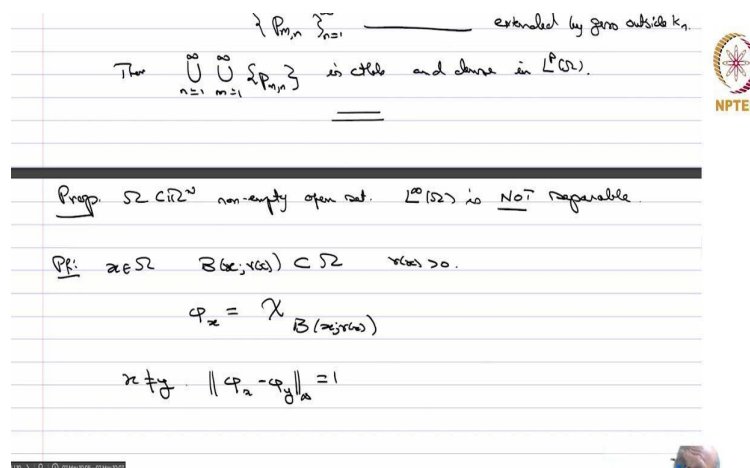 {P_{m,n}}_{n=1}^∞ ———— extended by zero outside K_n.
Then ∞⋃n=1 ∞⋃m=1 {P_{m,n}} is ctble and dense in L^p(Ω).
NPTE
Prop. Ω ⊂ ℝ^N non-empty open set. L^∞(Ω) is NOT separable.
Pf: x ∈ Ω B(x; r(x)) ⊂ Ω r(x) > 0.
φ_x = χ_{B(x; r(x))}
x ≠ y. ‖φ_x - φ_y‖_∞ = 1